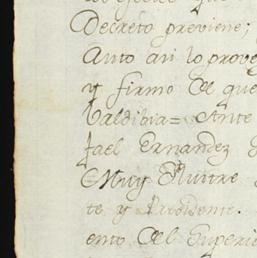 Decreto previene;
Auto asi lo prove
y firmo de que
Valdibia= Ante
fael Ernandez
Muy Yllustre
te y Presidente.
ento del Superio